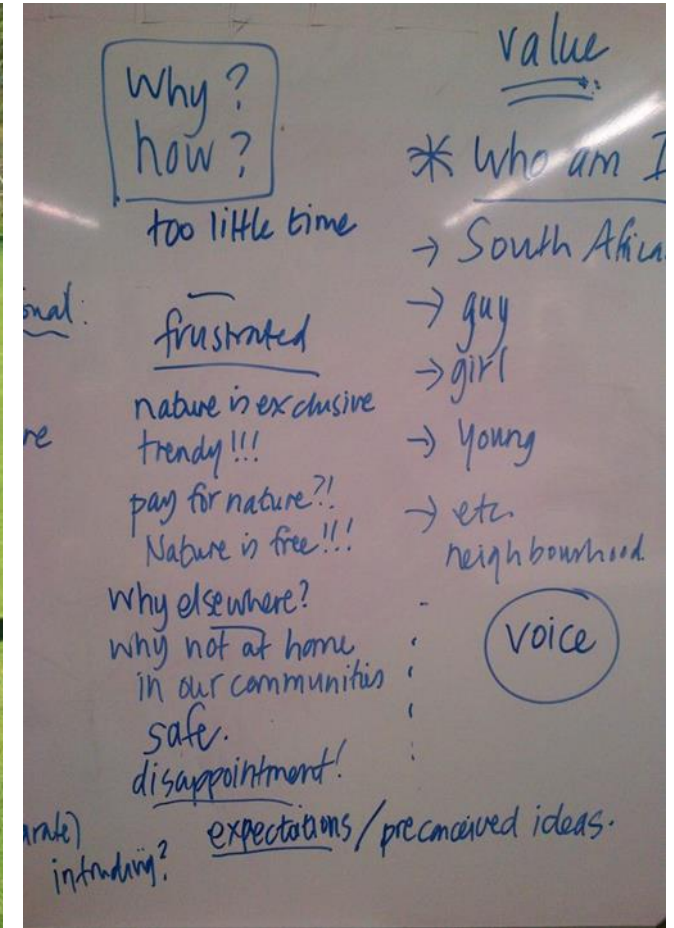 Why?
how?
too little time
frustrated
nature is exclusive
trendy!!!
pay for nature?!
Nature is free!!!
Why elsewhere?
why not at home
in our communities
safe.
disappointment!
expectations/preconceived ideas.
intruding?
value
* Who am I
→ South Africa
→ guy
→ girl
→ Young
→ etc.
neighbourhood.
voice